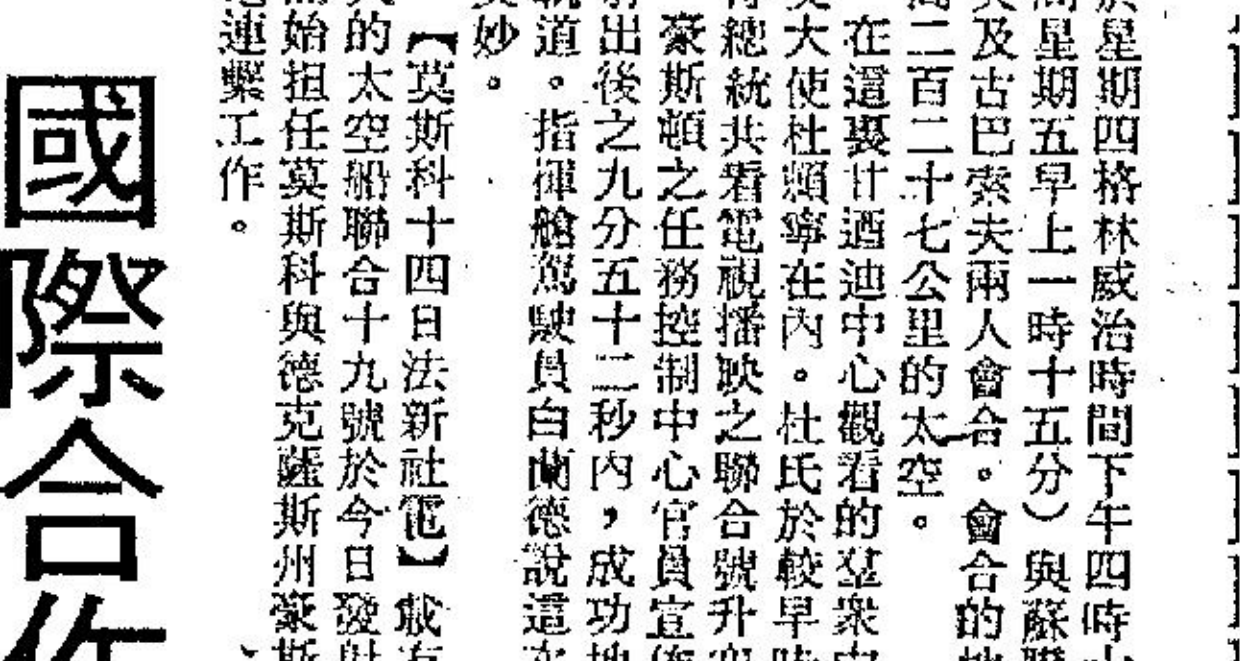 星期四格林威治時間下午四時
星期五早上一時十五分）與蘇聯
及古巴索夫兩人會合。會合的地
二百二十七公里的太空。
在這裏甘迺迪中心觀看的羣衆中
大使杜賴寧在內。杜氏於較早時
總統共看電視播映之聯合號升空
豪斯頓之任務控制中心官員宣佈
出後之九分五十二秒內，成功地
軌道。指揮艙駕駛員白蘭德說這次
妙。
【莫斯科十四日法新社電】載有
的太空船聯合十九號於今日發射
始担任莫斯科與德克薩斯州豪斯
連繫工作。
國際合作